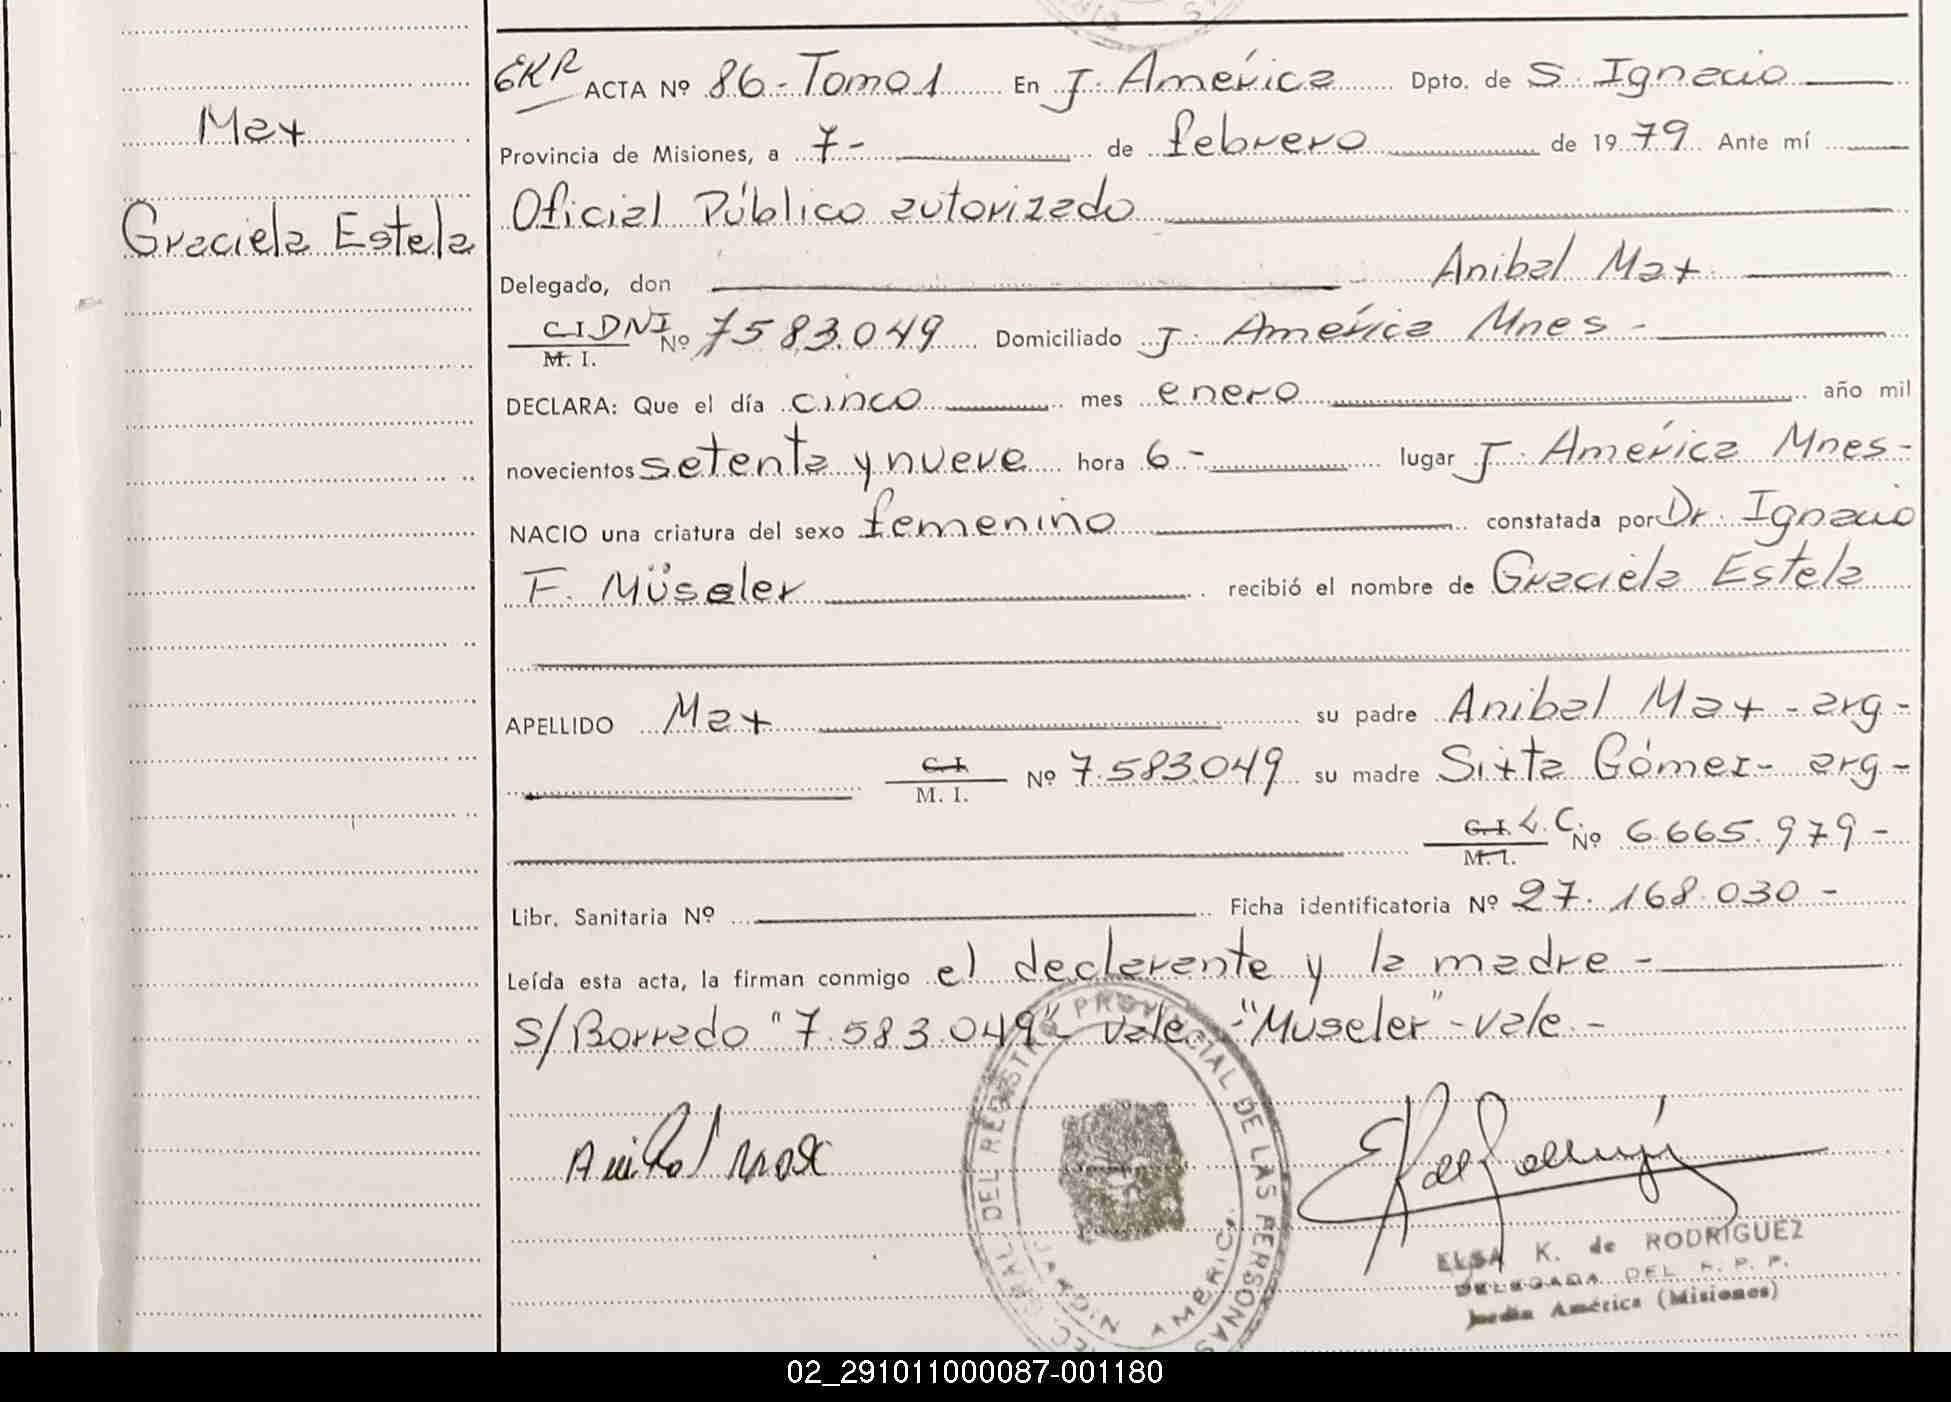 Max
Graciela Estela
EKR ACTA Nº 86-Tomo 1 En J. América Dpto. de S. Ignacio
Provincia de Misiones, a 7- de febrero de 1979 Ante mí
Oficial Público autorizado
Delegado, don Anibal Max
C I DNI Nº 7583.049 Domiciliado J. América Mnes-
M. I.
DECLARA: Que el día cinco mes enero año mil
novecientos setenta y nueve hora 6- lugar J. América Mnes-
NACIO una criatura del sexo femenino constatada por Dr. Ignacio
F. Müseler recibió el nombre de Graciela Estela
APELLIDO Max su padre Anibal Max - arg-
C. I. Nº 7.583.049 su madre Sixta Gómez- arg-
M. I.
C. I. L. C. Nº 6.665.979-
M. I.
Libr. Sanitaria Nº Ficha identificatoria Nº 27.168.030-
Leída esta acta, la firman conmigo el declarante y la madre-
S/Borrado "7.583.049" vale. -"Museler"-vale-
Anibal Max
REGISTRO PROVINCIAL DE LAS PERSONAS
JARDIN AMERICA
ELSA K. de RODRIGUEZ
DELEGADA DEL R. P. P.
Jardín América (Misiones)
02_291011000087-001180